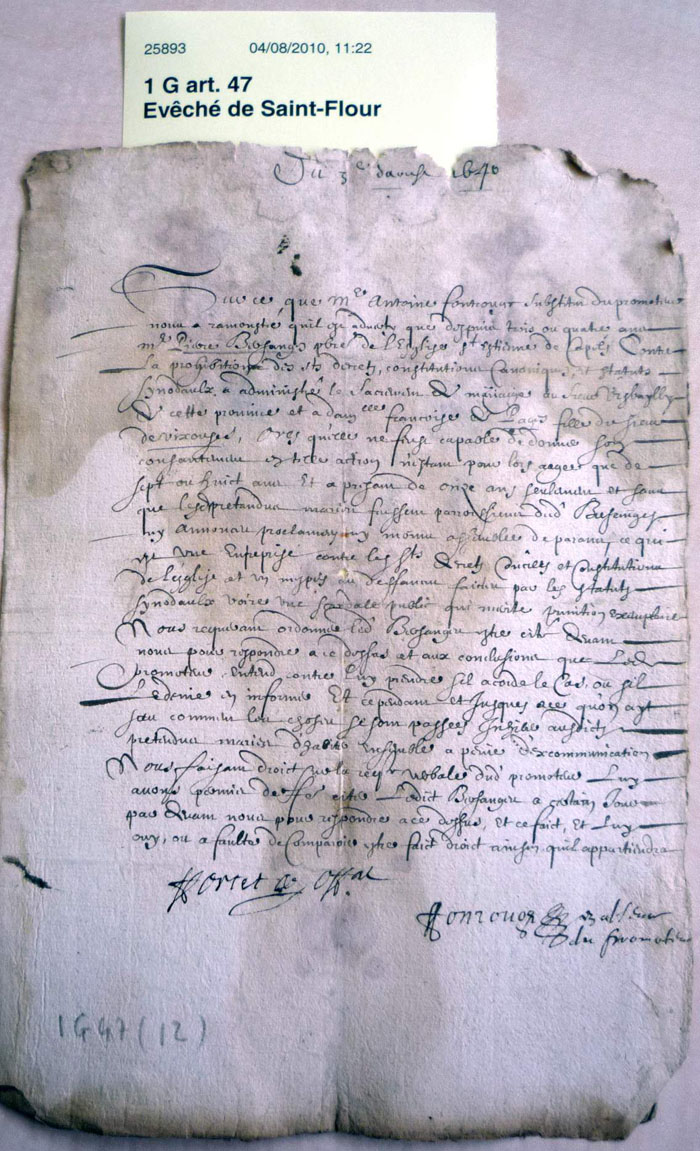 25893 04/08/2010, 11:22
1 G art. 47
Evêché de Saint-Flour
Du 3e daoust 1640
Sur ce que Me Antoine foncouue substitut du promoteur
nous a ramonstré quil est aduerty que despuis trois ou quatre ans
Mre Pierre Besangier pbre de lEglise St Estienne de Contre
La prohibition des sts decretz, constitutions Canoniques et statuts
synodaulx a administré le Sacrement de mariage au sieur
de cette prouince et a damlle francoise de fille du sieur
de vixouses, ores quicelle ne fusse capable de donner son
consantement estre action nestant pour lors aagee que de
sept ou huict ans Et a presant de onze ans seulement et sans
que lesd pretendus mariez fussent parroissiens dud Besangier
ny Annonces proclamees ny moins assemblee de parans, ce qui
est vne Entreprise contre les Sts decretz Conciles et Constitutions
de lesglise et vn mespris au deffances faictes par les statuts
synodaulx voires vne scandale public qui merite punition exemplaire
Nous requerant ordonner led Besangier estre cité deuant
nous pour respondre a ce dessus et aux conclusions que Led
promoteur entend contre luy prendre sil acorde le Cas, ou sil
Le denie en informer Et cependant et jusques a ce quon ayt
sceu comment les choses se sont passees Inhibé ausdicts
pretendus mariez dhabiter ensemble a peine dexcommunication
Nous faisant droict sur la reqte verbale dud promoteur Luy
auons permis de fre citer Ledict Besangier a certain Jour
par deuant nous pour respondre a ce dessus, Et ce faict, Et Luy
ouy, ou a faulte de Comparoir estre faict droict ainsin quil appartiendra
offal
du promoteur
1 G 47 (12)